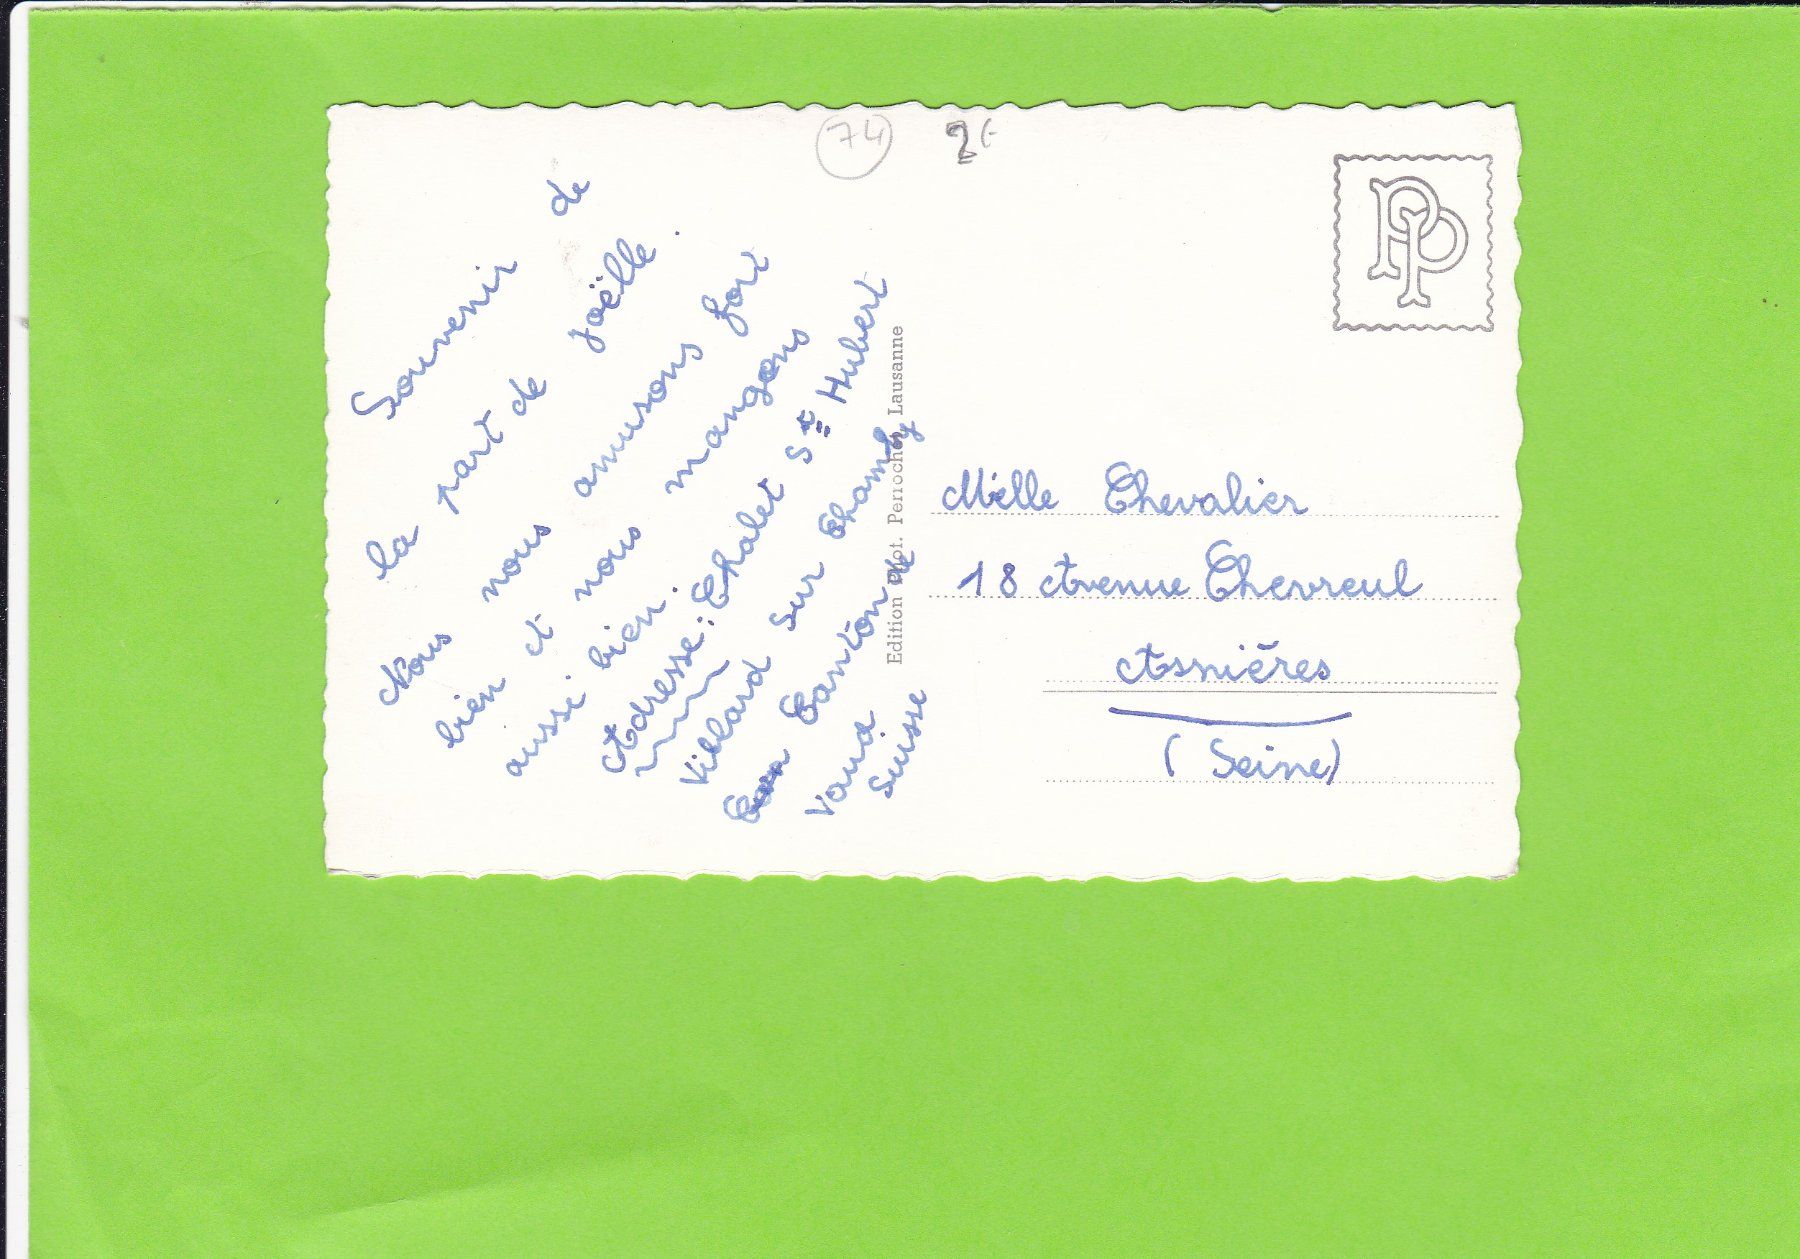 74
2€
Souvenir de
la part de Joëlle.
Nous nous amusons fort
bien et nous mangons
aussi bien.
Adresse: Chalet St Hubert
Villard sur Chamby
Canton de
Vaud
Suisse
Edition Phot. Perrochet, Lausanne
PP
Melle Chevalier
18 Avenue Chevreul
Asnières
(Seine)